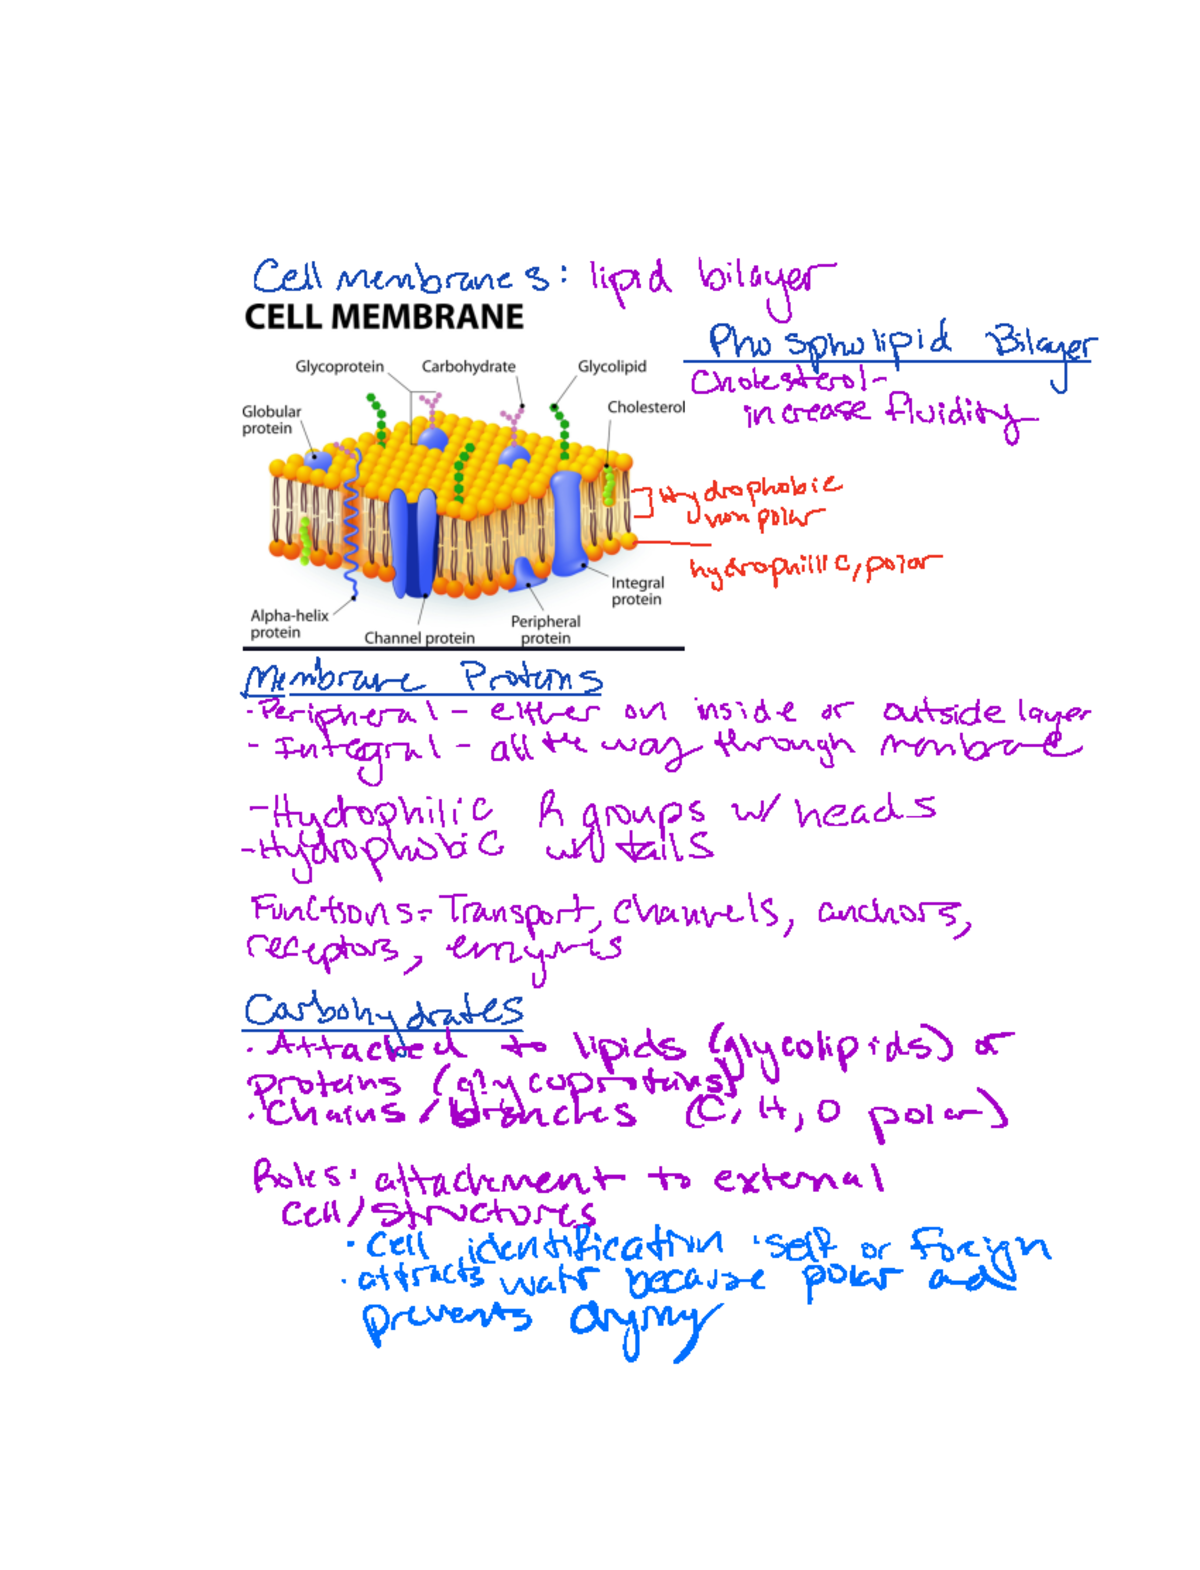 Cell membranes: lipid bilayer
CELL MEMBRANE
Phospholipid Bilayer
Cholesterol-
increase fluidity
Glycoprotein
Carbohydrate
Glycolipid
Globular
protein
Cholesterol
Hydrophobic
non polar
hydrophillic, polar
Alpha-helix
protein
Channel protein
Peripheral
protein
Integral
protein
Membrane Proteins
·Peripheral - either on inside or outside layer
- Integral - all the way through menbrane
-Hydrophilic R groups w/ heads
-Hydrophobic w/ tails
Functions= Transport, channels, anchors,
receptors, enzymes
Carbohydrates
· Attached to lipids (glycolipids) or
proteins (glycoproteins)
· Chains/branches (C, H, O polar)
Roles: attachment to external
cell/structures
· cell identification · self or foreign
· attracts water because polar and
prevents drying